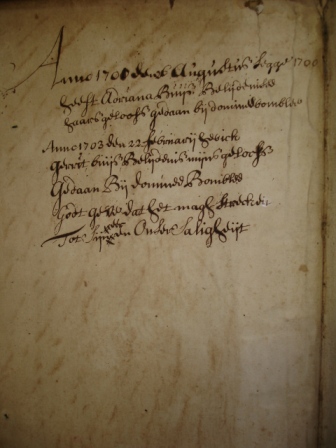 Anno 1700 den Augustus segge 1700
heeft Adriana Buijs Belijdenisse
haars geloofs gedaan bij dominee bomble
Anno 1703 den 22 februarij heb ick
gerrit buijs Belijdenis mijns geloofs
Gedaan Bij dominee Bombles
Godt geve dat het magh strecken
Tot sijn eer en Onser Saligheijt